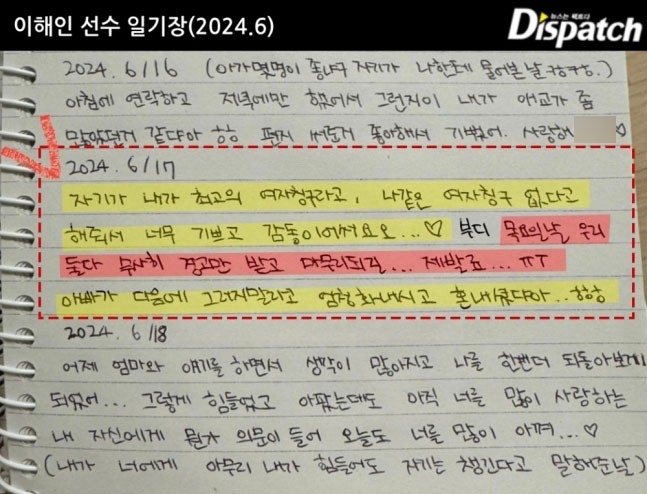 이해인 선수 일기장(2024.6)
뉴스는 팩트다
Dispatch
2024. 6/16 (아가 몇명이 좋냐구 자기가 나한테 물어본 날 ㅎㅎㅎ.)
아침에 연락하고 저녁에만 했어서 그런지이 내가 애교가 좀
많았던거 같다아 ㅎㅎ 편지 써준거 좋아해서 기뻤어. 사랑해 ♡
2024. 6/17
자기가 내가 최고의 여자칭구라고, 나같은 여자칭구 없다고
해줘서 너무 기쁘고 감동이어써요오...♡ 부디 목요일날 우리
둘다 무사히 경고만 받고 마무리되길... 제발료... ㅠㅠ
아빠가 다음에 그러지말라고 엄청화내시고 혼내셨다아..ㅎㅎ
2024. 6/18
어제 엄마와 얘기를 하면서 생각이 많아지고 나를 한번더 되돌아보게
되었어... 그렇게 힘들었고 아팠는데도 아직 너를 많이 사랑하는
내 자신에게 뭔가 의문이 들어 오늘도 너를 많이 아껴...♡
(내가 너에게 아무리 내가 힘들어도 자기는 챙긴다고 말해준날)